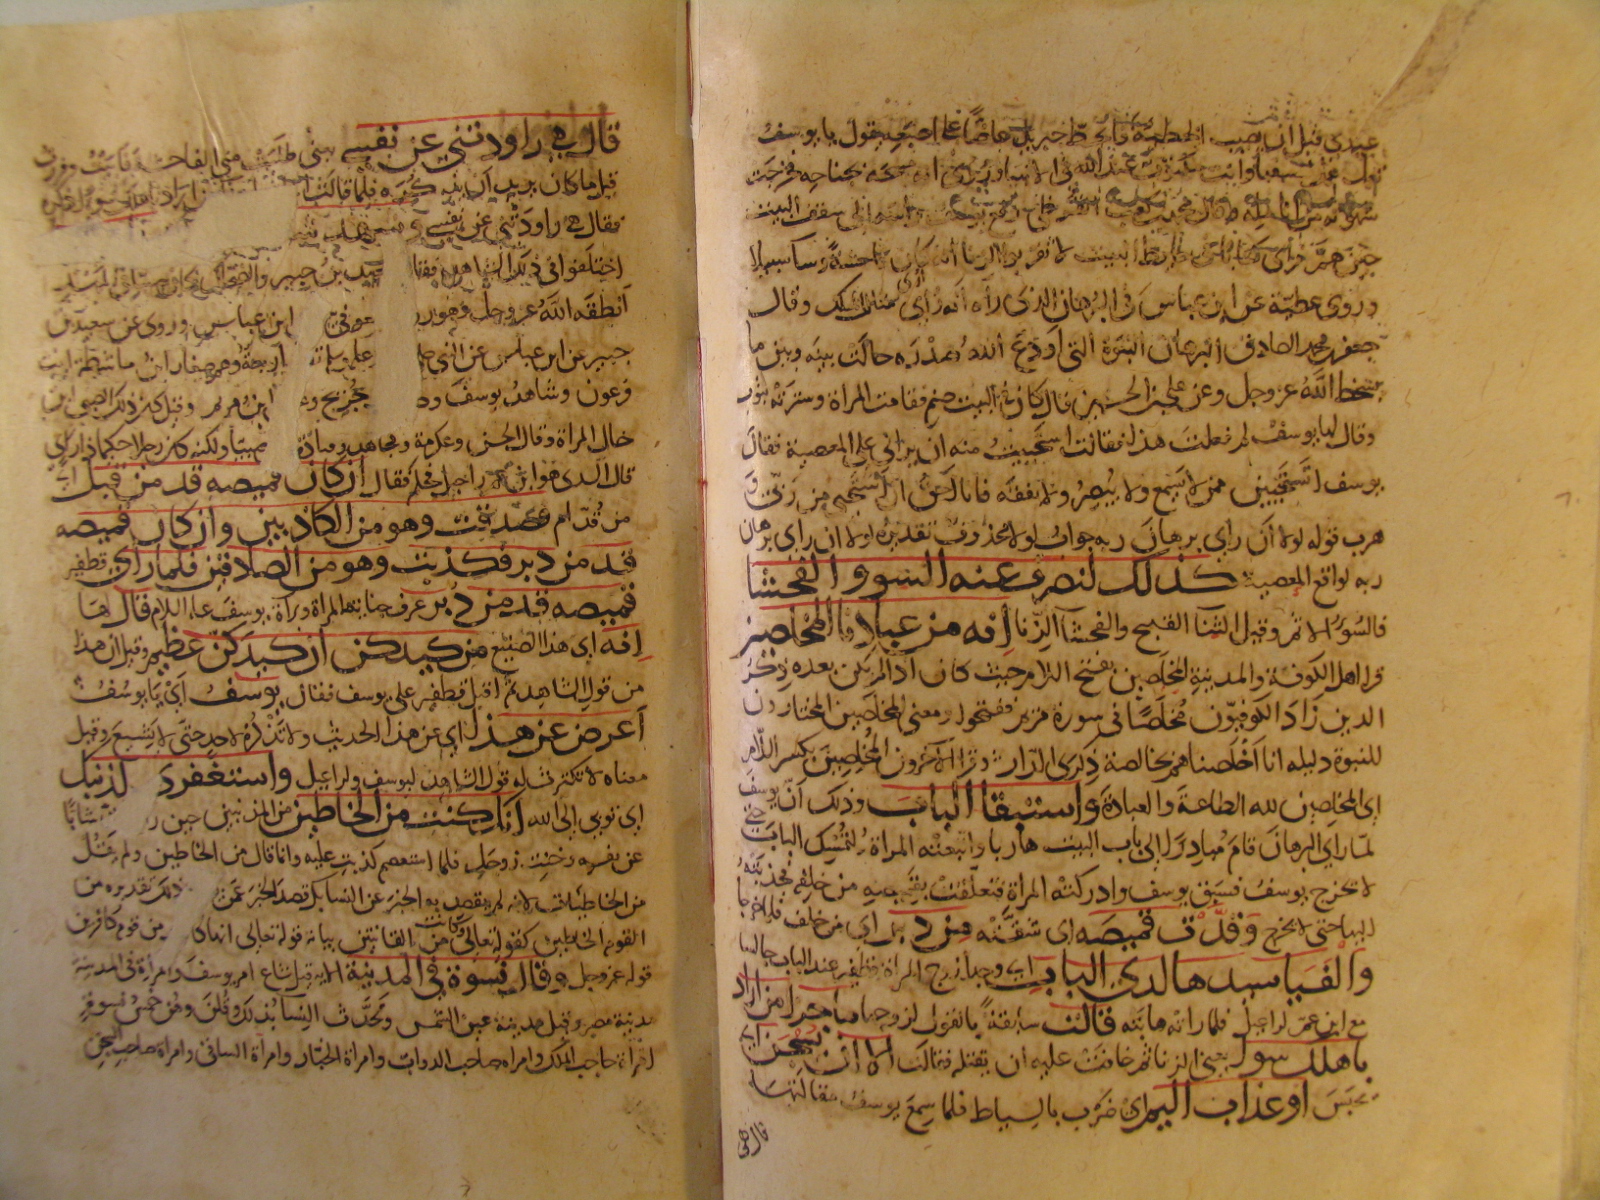 عبدي قبل ان يصيب الخطيئة فانحط جبريل عاضا على اصبعه يقول يا يوسف
تعمل عمل السفهاء وانت مكتوب عند الله في الانبياء وروي انه مسحه بجناحه فخرجت
شهوته من انامله
حين هم فراى كتابا في حايط البيت لا تقربوا الزنا انه كان فاحشة وساء سبيلا
وروى عطية عن ابن عباس في البرهان الذي راه انه راى مثال الملك وقال
جعفر بن محمد الصادق البرهان النبوة التي اودع الله صدره حالت بينه وبين ما
يسخط الله عز وجل وعن علي بن الحسين قال كان في البيت صنم فقامت المراة وسترته بثوب
وقال لها يوسف لم فعلت هذا فقالت استحييت منه ان يراني على المعصية فقال
يوسف اتستحيين ممن لا يسمع ولا يبصر ولا يفقه فانا احق ان استحيي من ربي و
هرب قوله لولا ان راى برهان ربه جواب لولا محذوف تقديره لولا ان راى برهان
ربه لواقع المعصية كذلك لنصرف عنه السوء والفحشا
فالسوء الاثم وقيل الثنا القبيح والفحشا الزنا انه من عبادنا المخلصين
قرا اهل الكوفة والمدينة المخلصين بفتح اللام حيث كان اذا لم يكن بعده ذكر
الدين زاد الكوفيون مخلصا في سورة مريم ففتحوا ومعنى المخلصين المختارون
للنبوة دليله انا اخلصناهم بخالصة ذكرى الدار وقرا الاخرون المخلصين بكسر اللام
اي المخلصين لله الطاعة والعبادة واستبقا الباب وذلك ان يوسف
لما راى البرهان قام مبادرا الى باب البيت هاربا واتبعته المراة لتمسك الباب حتى
لا يخرج يوسف فسبق يوسف وادركته المراة فتعلقت بقميصه من خلفه فجذبته
اليها حتى لا يخرج وقدت قميصه اي شقته من دبر اي من خلف فلما خرجا
والفيا سيدها لدى الباب اي وجدا زوج المراة قطفير عند الباب جالسا
مع ابن عم لراعيل فلما راته هابته قالت سابقة بالقول لزوجها ما جزا من اراد
باهلك سوا يعني الزنا ثم خافت عليه ان يقتله فقالت الا ان يسجن اي
يحبس او عذاب اليم اي ضرب بالسياط فلما سمع يوسف مقالتها
قال هي
قال هي راودتني عن نفسي يعني طلبت مني الفاحشة فابيت وفررت
قيل ما كان يريد ان يذكره فلما قالت ما جزا من اراد باهلك سوءا ذكره
فقال هي راودتني عن نفسي وشهد شاهد
اختلفوا في ذلك الشاهد فقال سعيد بن جبير والضحاك كان صبيا في المهد
انطقه الله عز وجل وهو رواية العوفي ابن عباس وروي عن سعيد بن
جبير عن ابن عباس عن النبي عليه وسلم انه اربعة وهم صغار ابن ماشطة ابنت
فرعون وشاهد يوسف وصاحب جريج و ابن مريم وقيل كان ذلك الصبي ابن
خال المراة وقال الحسن وعكرمة ومجاهد وقتادة صبيا ولكنه كان رجلا حكيما ذا راي
قال السدي هو ابن عم راعيل فحكم فقال ان كان قميصه قد من قبل اي
من قدام فصدقت وهو من الكاذبين وان كان قميصه
قد من دبر فكذبت وهو من الصادقين فلما راى قطفير
قميصه قد من دبر عرف خيانة المراة وبراة يوسف عليه السلام قال لها
انه اي هذا الصنيع من كيدكن ان كيدكن عظيم وقيل ان هذا
من قول الشاهد ثم اقبل قطفير على يوسف فقال يوسف اي يا يوسف
اعرض عن هذا اي عن هذا الحديث ولا تذكره لاحد حتى لا يشيع وقيل
معناه لا تكترث له قول الشاهد ليوسف ولراعيل واستغفري لذنبك
اي توبي الى الله انك كنت من الخاطين من المذنبين حين شابا
عن نفسه وخنت زوجك فلما استعصم كذبت عليه وانما قال من الخاطين ولم يقل
من الخاطيات لانه لم يقصد به الخبر عن النسا بل قصد الخبر عمن ذلك تقديره من
القوم الخاطين كقوله تعالى وكانت من القانتين بيانه قوله تعالى انها كانت من قوم كافرين
قوله عز وجل وقال نسوة في المدينة الاية قيل شاع امر يوسف وامراة في المدينة
مدينة مصر وقيل مدينة عين الشمس وتحدث النسا بذلك وقلن وهن خمس نسوة
امراة حاجب الملك وامراة صاحب الدواب وامراة الخباز وامراة الساقي وامراة صاحب السجن